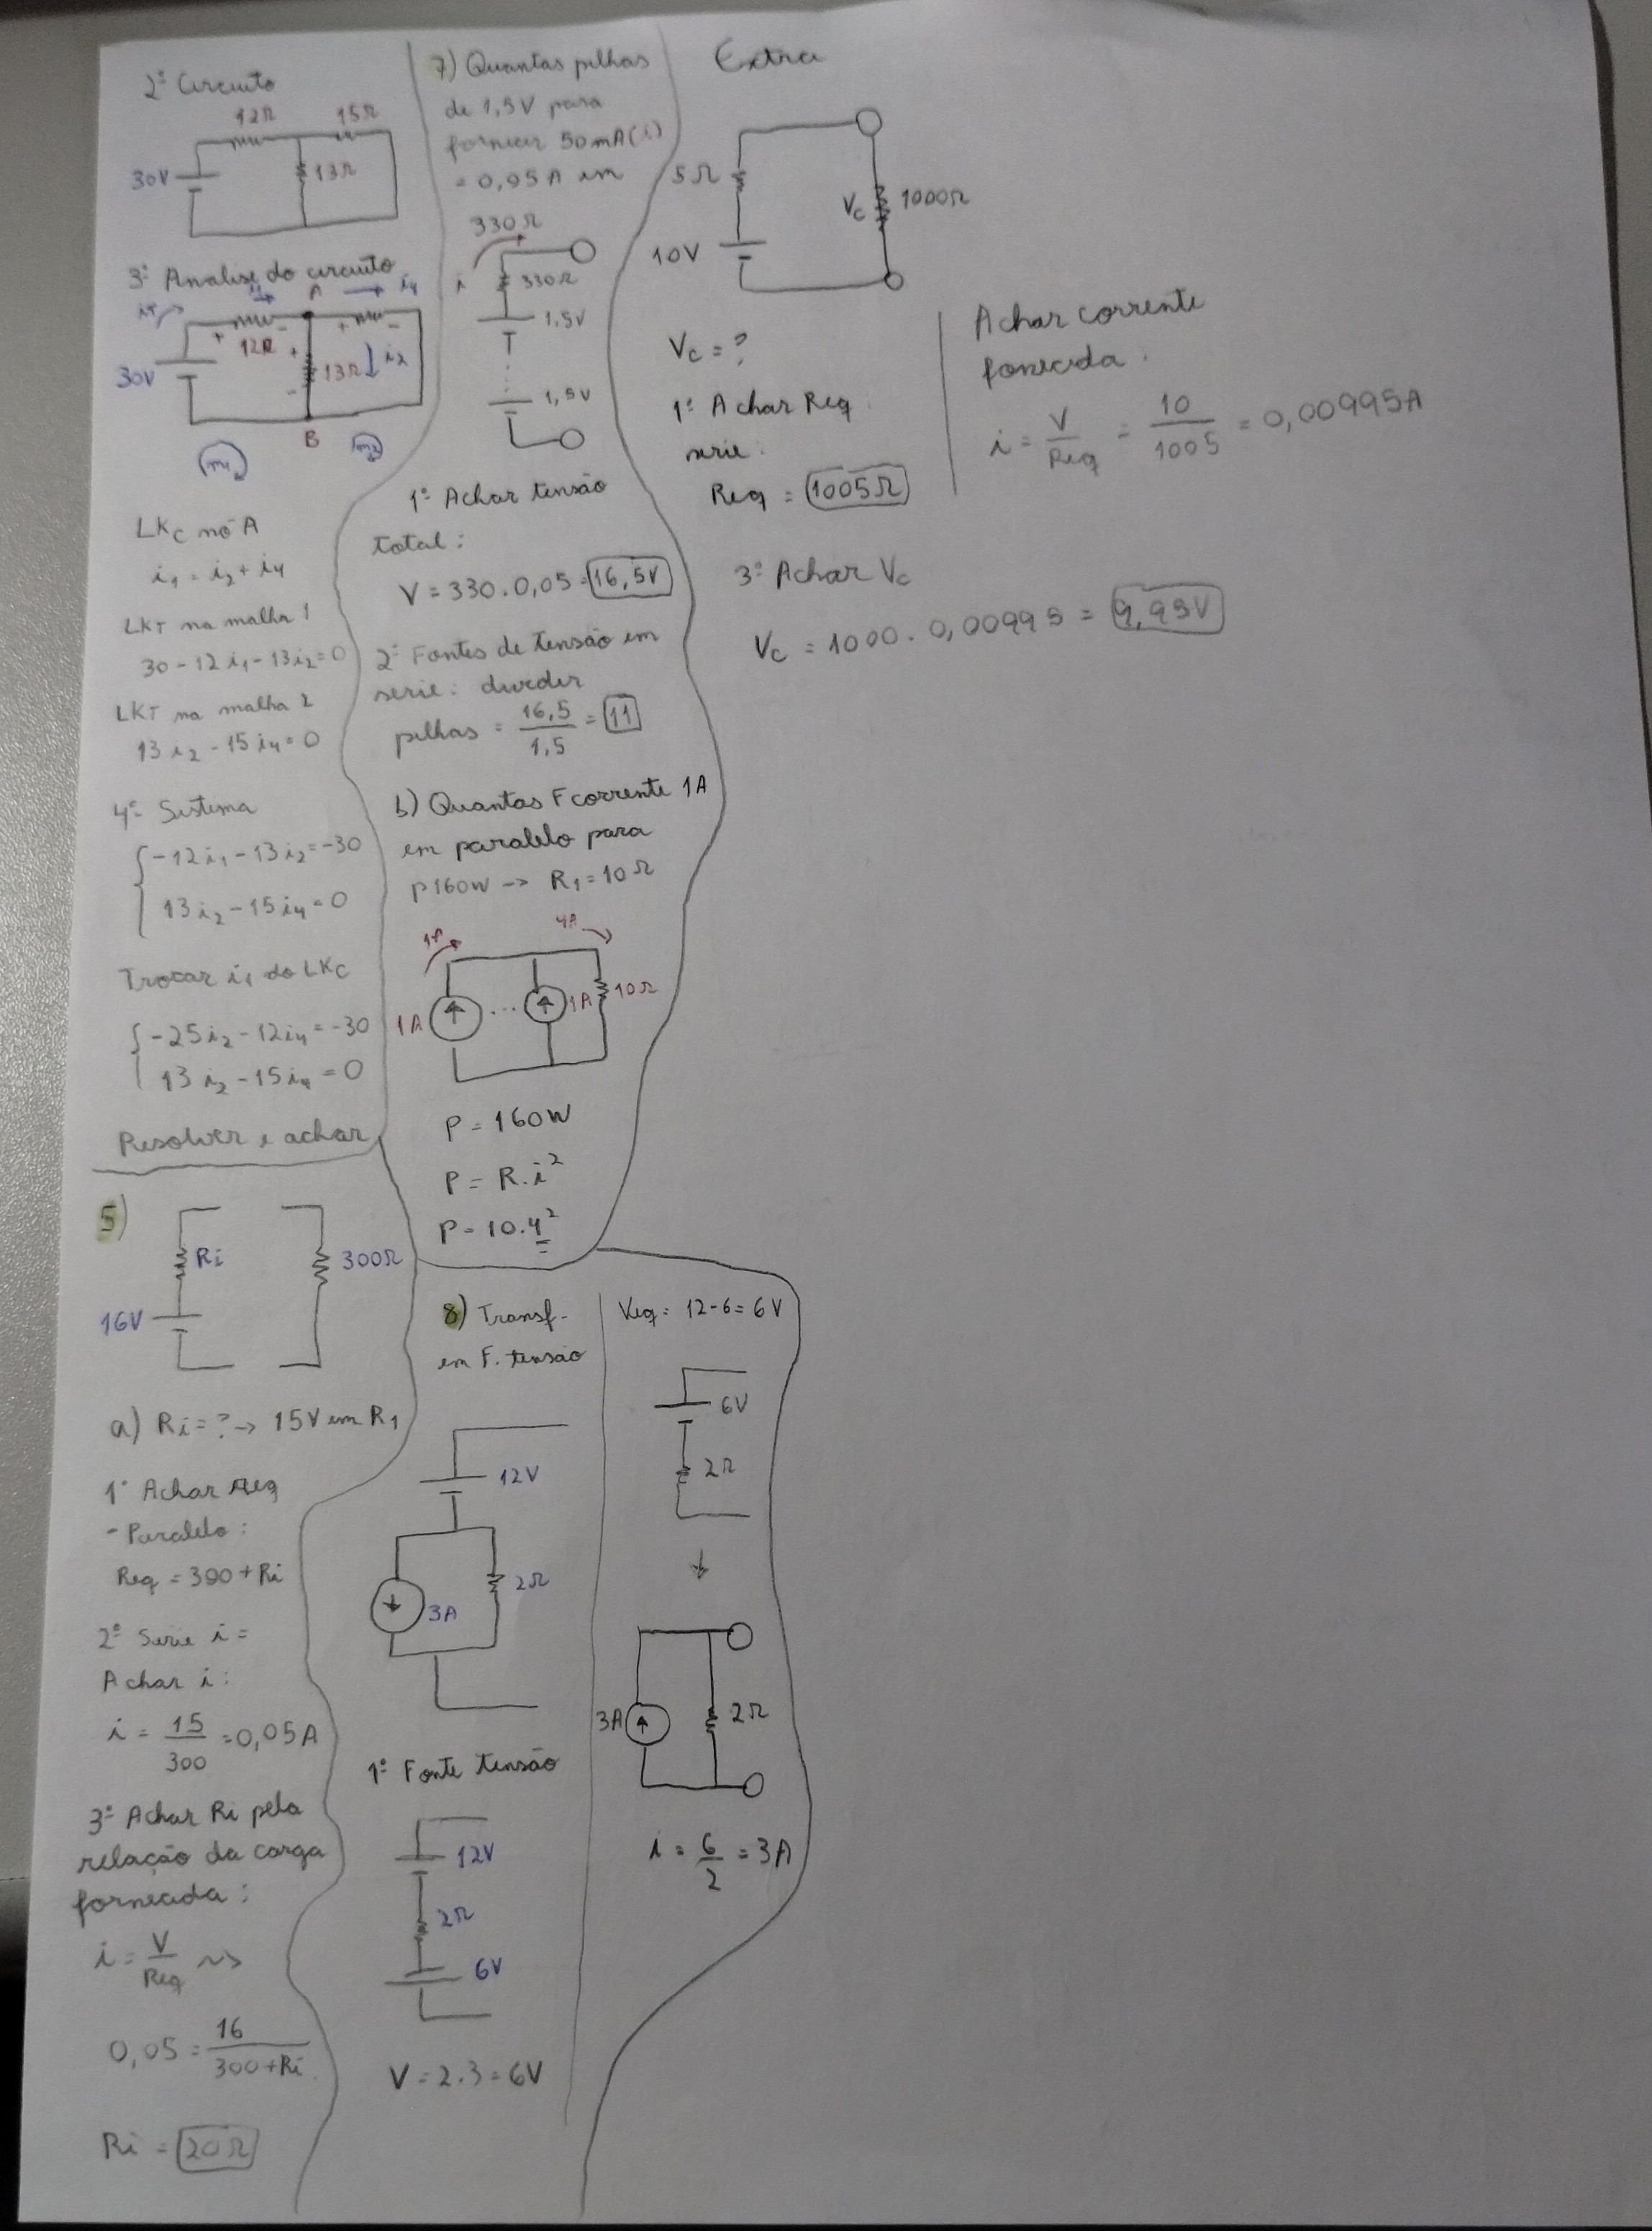 2º Circuito
12Ω 15Ω
30V 13Ω
3º Analise do circuito
iT i1 A i4
12Ω
30V 13Ω i2
B
m1 m2
LKC nó A
i1 = i2 + i4
LKT na malha 1
30 - 12 i1 - 13 i2 = 0
LKT na malha 2
13 i2 - 15 i4 = 0
4º Sistema
-12 i1 - 13 i2 = -30
13 i2 - 15 i4 = 0
Trocar i1 do LKC
-25 i2 - 12 i4 = -30
13 i2 - 15 i4 = 0
Resolver e achar
5)
Ri 300Ω
16V
a) Ri = ? → 15V em R1
1º Achar Req
- Paralelo:
Req = 300 + Ri
2º Serie i =
Achar i:
i = 15/300 = 0,05 A
3º Achar Ri pela
relação da carga
fornecida:
i = V/Req ~>
0,05 = 16/300 + Ri
Ri = 20Ω
7) Quantas pilhas
de 1,5V para
fornecer 50mA (i)
= 0,05A em
330Ω
i 330Ω
1,5V
1,5V
1º Achar tensão
total:
V = 330 . 0,05 = 16,5V
2º Fontes de tensão em
serie: dividir
pilhas = 16,5/1,5 = 11
b) Quantas F corrente 1A
em paralelo para
P 160W → R1 = 10Ω
1A 4A
1A ... 1A 10Ω
P = 160W
P = R . i²
P = 10 . 4²
8) Transf-
em F. tensão
12V
3A 2Ω
1º Fonte tensão
12V
2Ω
6V
V = 2 . 3 = 6V
Veq = 12 - 6 = 6V
6V
2Ω
↓
3A 2Ω
i = 6/2 = 3A
Extra
5Ω Vc 1000Ω
10V
Vc = ?
1º Achar Req
serie:
Req = 1005Ω
Achar corrente
fornecida:
i = V/Req = 10/1005 = 0,00995A
3º Achar Vc
Vc = 1000 . 0,00995 = 9,95V